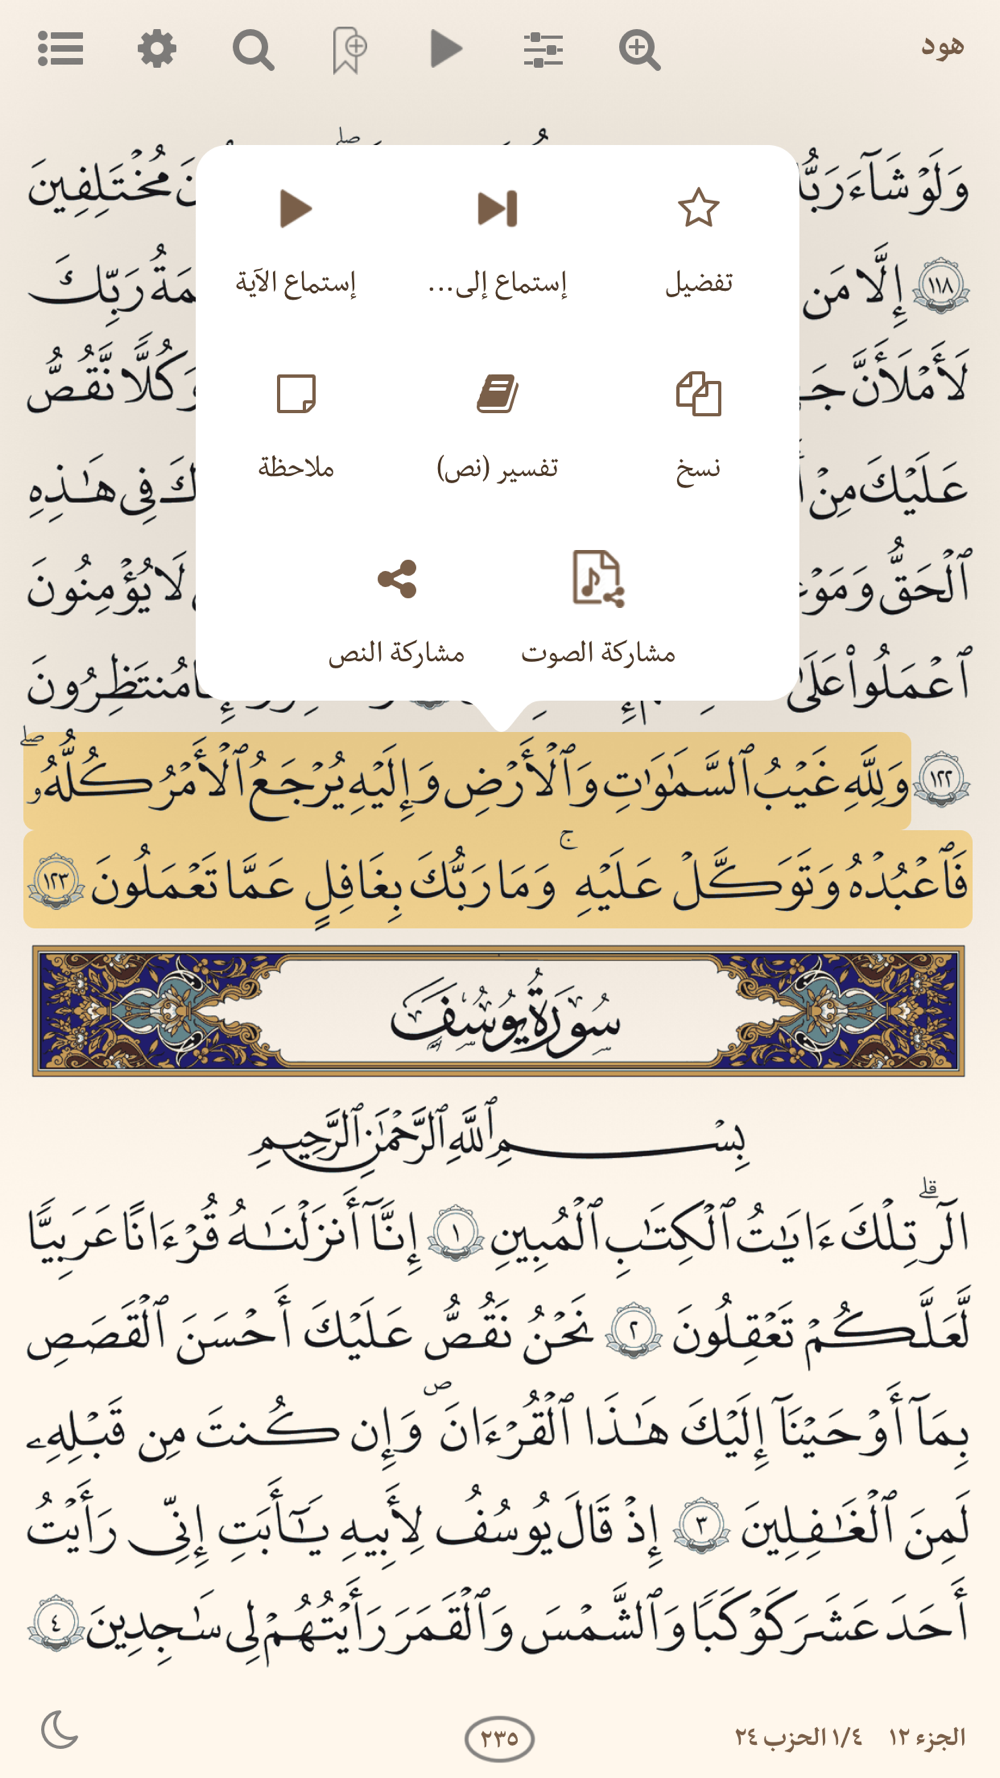 هود
وَلَوْ شَآءَ رَبُّ مُخْتَلِفِينَ
تفضيل
إستماع إلى...
إستماع الآية
١١٨ إِلَّا مَن رَبِّكَ
لَأَمْلَأَنَّ وَكُلًّا نَّقُصُّ
نسخ
تفسير (نص)
ملاحظة
عَلَيْكَ مِنْ فِى هَـٰذِهِ
ٱلْحَقُّ لَا يُؤْمِنُونَ
مشاركة الصوت
مشاركة النص
ٱعْمَلُوا۟ عَلَىٰ مُنتَظِرُونَ
١٢٢ وَلِلَّهِ غَيْبُ ٱلسَّمَـٰوَٰتِ وَٱلْأَرْضِ وَإِلَيْهِ يُرْجَعُ ٱلْأَمْرُ كُلُّهُۥ ۖ
فَٱعْبُدْهُ وَتَوَكَّلْ عَلَيْهِ ۚ وَمَا رَبُّكَ بِغَـٰفِلٍ عَمَّا تَعْمَلُونَ ١٢٣
سُورَةُ يُوسُفَ
بِسْمِ ٱللَّهِ ٱلرَّحْمَـٰنِ ٱلرَّحِيمِ
الٓر ۚ تِلْكَ ءَايَـٰتُ ٱلْكِتَـٰبِ ٱلْمُبِينِ ١ إِنَّآ أَنزَلْنَـٰهُ قُرْءَٰنًا عَرَبِيًّا
لَّعَلَّكُمْ تَعْقِلُونَ ٢ نَحْنُ نَقُصُّ عَلَيْكَ أَحْسَنَ ٱلْقَصَصِ
بِمَآ أَوْحَيْنَآ إِلَيْكَ هَـٰذَا ٱلْقُرْءَانَ وَإِن كُنتَ مِن قَبْلِهِۦ
لَمِنَ ٱلْغَـٰفِلِينَ ٣ إِذْ قَالَ يُوسُفُ لِأَبِيهِ يَـٰٓأَبَتِ إِنِّى رَأَيْتُ
أَحَدَ عَشَرَ كَوْكَبًا وَٱلشَّمْسَ وَٱلْقَمَرَ رَأَيْتُهُمْ لِى سَـٰجِدِينَ ٤
الجزء ١٢ ١/٤ الحزب ٢٤
٢٣٥